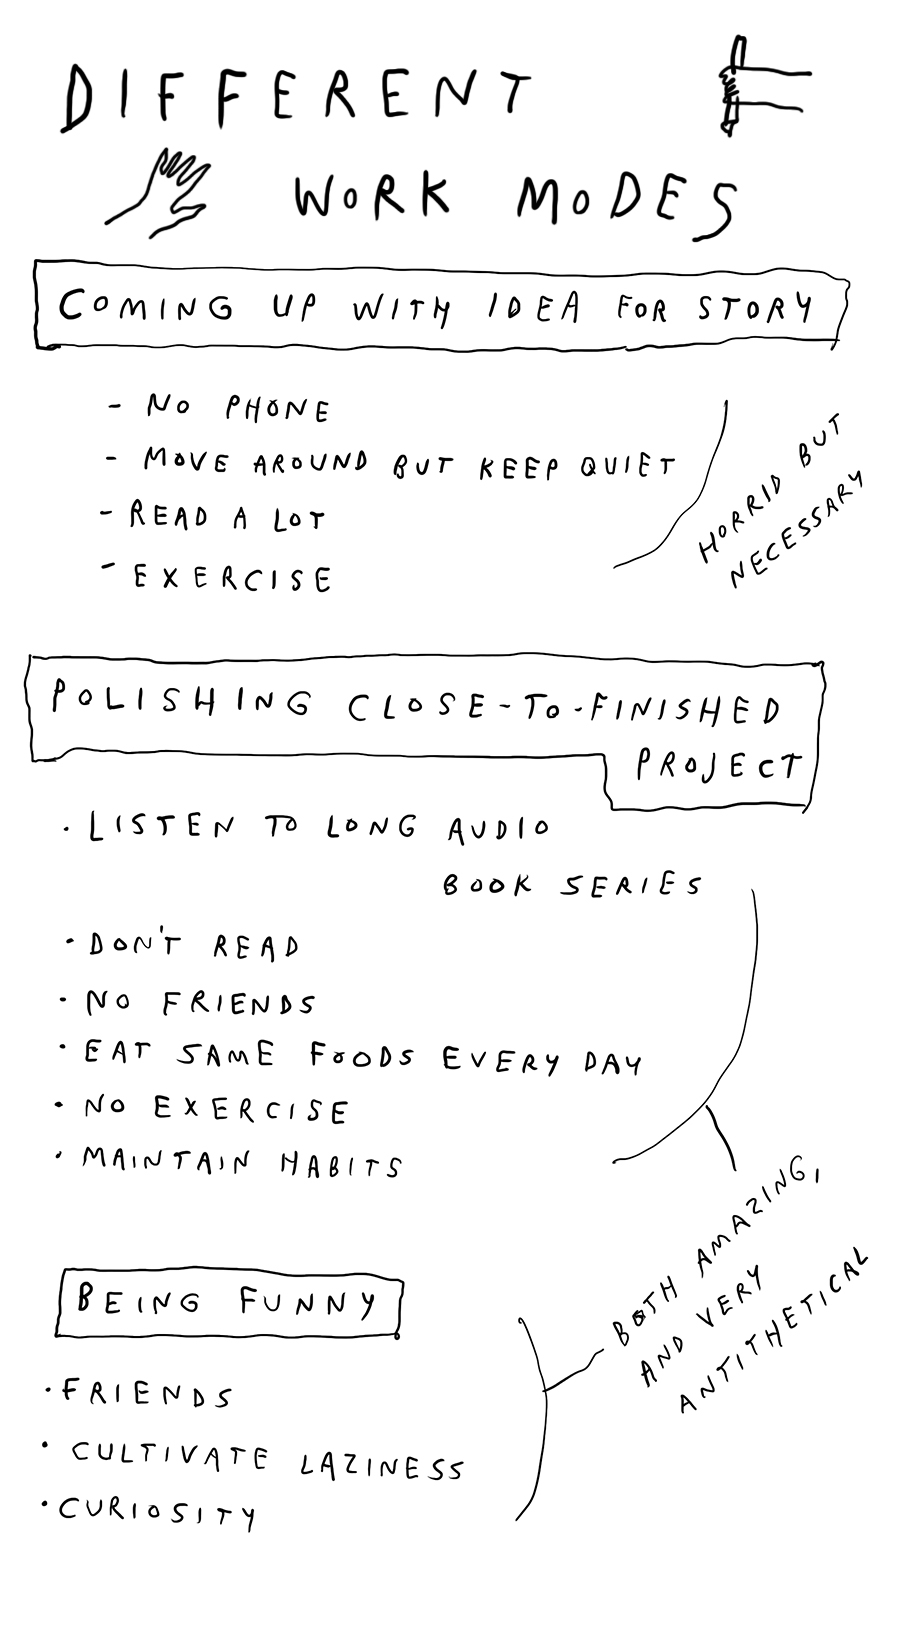 DIFFERENT
WORK MODES
COMING UP WITH IDEA FOR STORY
- NO PHONE
- MOVE AROUND BUT KEEP QUIET
- READ A LOT
- EXERCISE
HORRID BUT
NECESSARY
POLISHING CLOSE-TO-FINISHED
PROJECT
· LISTEN TO LONG AUDIO
BOOK SERIES
· DON'T READ
· NO FRIENDS
· EAT SAME FOODS EVERY DAY
· NO EXERCISE
· MAINTAIN HABITS
BOTH AMAZING,
AND VERY
ANTITHETICAL
BEING FUNNY
· FRIENDS
· CULTIVATE LAZINESS
· CURIOSITY